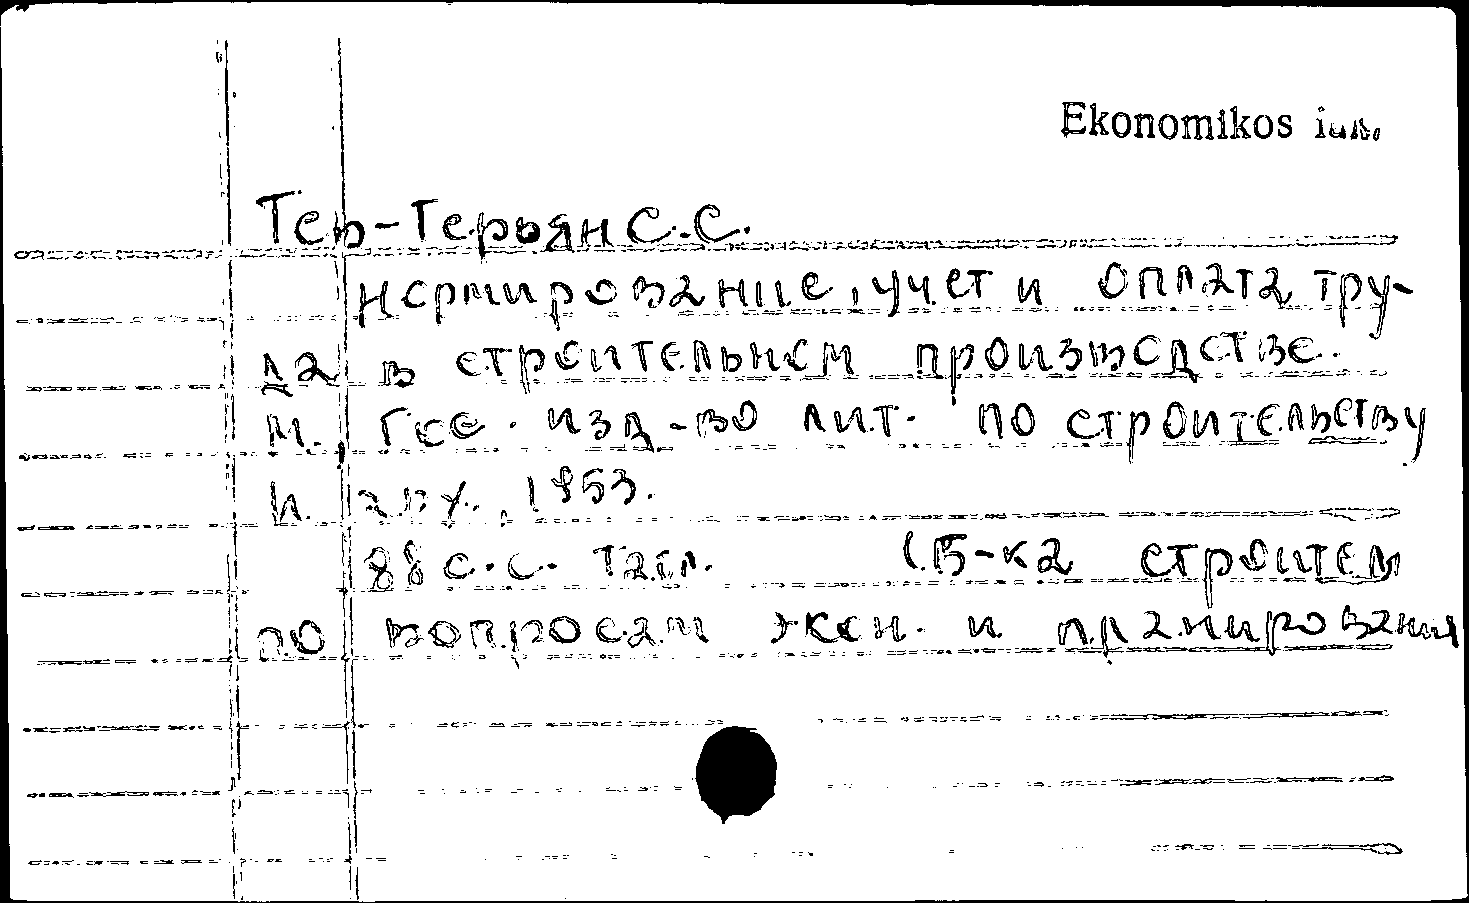 Ekonomikos
Тер-Терьян С.С.
Нормирование, учет и оплата тру-
да в строительном производстве.
М., Гос. изд-во лит. по строительству
и арх., 1953.
88 с. с. табл. (Б-ка строител
по вопросам экон. и планирования